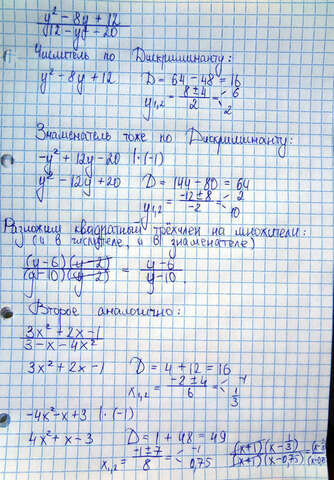 y² - 8y + 12
12 - y² - 20
Числитель по Дискриминанту:
y² - 8y + 12 D = 64 - 48 = 16
y₁,₂ = 8 ± 4 / 2 = 6
2
Знаменатель тоже по Дискриминанту:
-y² + 12y - 20 |·(-1)
y² - 12y + 20 D = 144 - 80 = 64
y₁,₂ = -12 ± 8 / -2 = 2
10
Разложим квадратный трёхчлен на множители:
(и в числителе, и в знаменателе)
(y-6)(y-2) / (y-10)(y-2) = y-6 / y-10
Второе аналогично:
3x² + 2x - 1
3 - x - 4x²
3x² + 2x - 1 D = 4 + 12 = 16
x₁,₂ = -2 ± 4 / 6 = -1
1/3
-4x² - x + 3 |·(-1)
4x² + x - 3 D = 1 + 48 = 49
x₁,₂ = -1 ± 7 / 8 = -1
0,75
(x+1)(x-1/3) / (x+1)(x-0,75) =